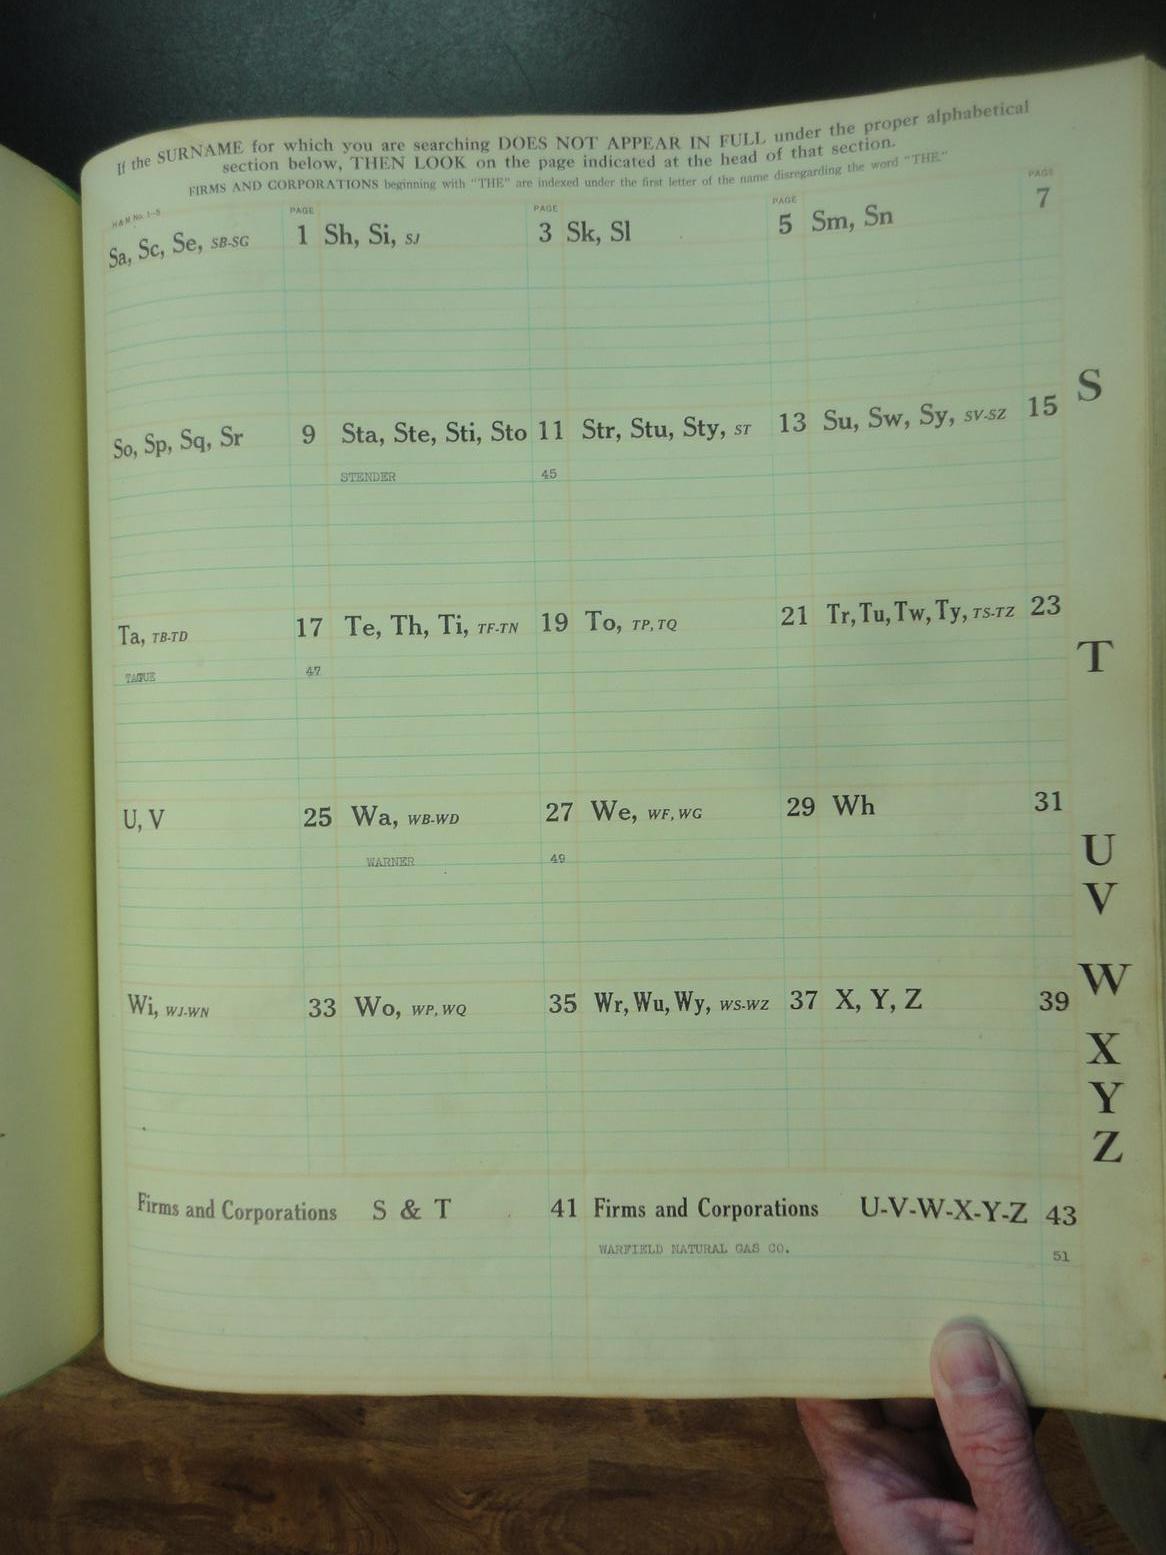 If the SURNAME for which you are searching DOES NOT APPEAR IN FULL under the proper alphabetical
section below, THEN LOOK on the page indicated at the head of that section.
FIRMS AND CORPORATIONS beginning with "THE" are indexed under the first letter of the name disregarding the word "THE."
H&M No. 1-S
PAGE PAGE PAGE PAGE
Sa, Sc, Se, SB-SG 1 Sh, Si, SJ 3 Sk, Sl 5 Sm, Sn 7
S
So, Sp, Sq, Sr 9 Sta, Ste, Sti, Sto 11 Str, Stu, Sty, ST 13 Su, Sw, Sy, SV-SZ 15
STENDER 45
Ta, TB-TD 17 Te, Th, Ti, TF-TN 19 To, TP, TQ 21 Tr, Tu, Tw, Ty, TS-TZ 23
T
TAGUE 47
U, V 25 Wa, WB-WD 27 We, WF, WG 29 Wh 31
U
WARNER 49
V
W
Wi, WJ-WN 33 Wo, WP, WQ 35 Wr, Wu, Wy, WS-WZ 37 X, Y, Z 39
X
Y
Z
Firms and Corporations S & T 41 Firms and Corporations U-V-W-X-Y-Z 43
WARFIELD NATURAL GAS CO. 51